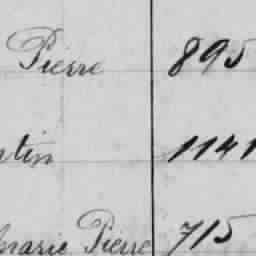 Pierre 895
ntin 1141
marie Pierre 715